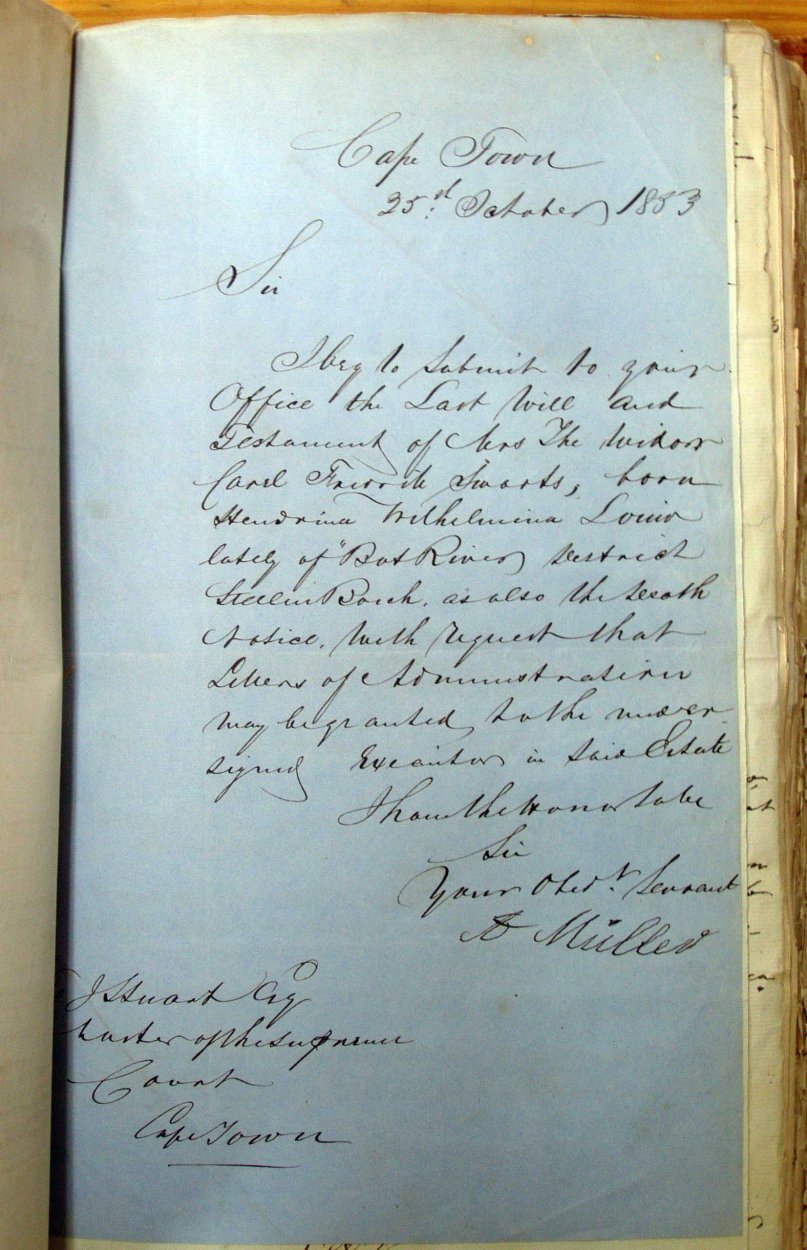 Cape Town
25.d October 1853
Sir
I beg to Submit to your
Office the Last Will and
Testament of Mrs The Widow
Carel Fredrik Swarts, born
Hendrina Wilhelmina Louw
lately of "Bot River" district
StellenBosch. as also the Death
Notice. With request that
Letters of Administration
may be granted to the under
signed Executor in Said Estate
I have the Honor to be
Sir
Your Obedt. Servant
A Müller
J Stuart Esq
Master of the Supreme
Court
Cape Town